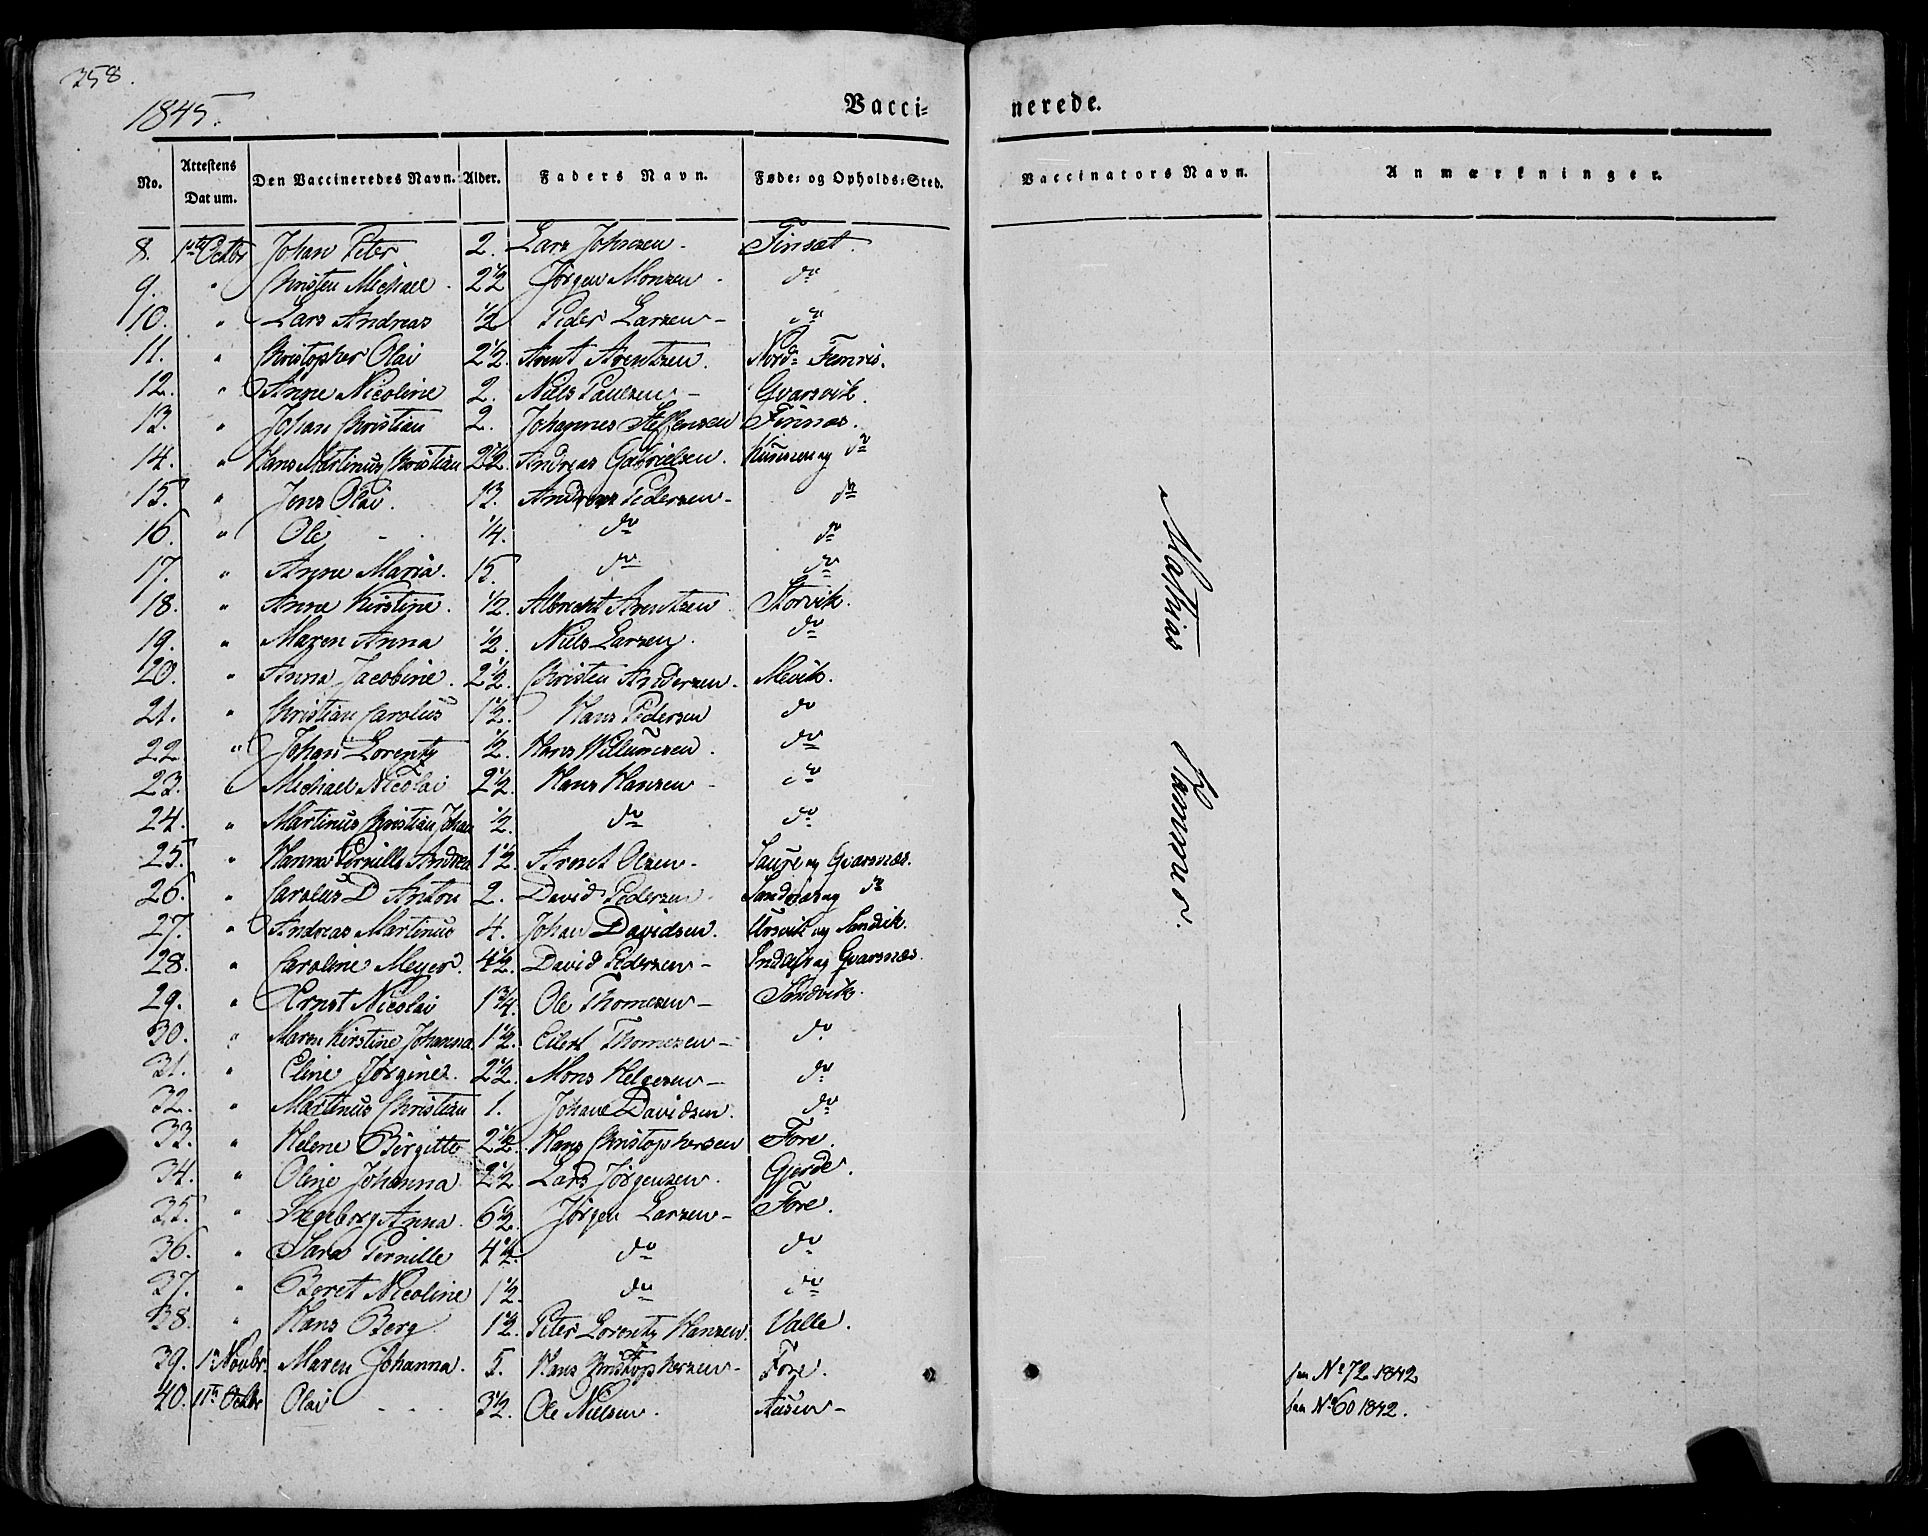 358.
1845.
Vacci- nerede.
No. Attestens Datum. Den Vaccineredes Navn. Alder. Faders Navn. Føde- og Opholds-Sted. Vaccinators Navn. Anmærkninger.
8. 1ste Octbr Johan Peter 2. Lars Johnsen Finsæt.
9. " Christen Michael 2 1/2 Jørgen Monsen do
10. " Lars Andreas 1/2 Peder Larsen do
11. " Christopher Olai 2 1/2. Arent Arentsen. Nord- Femris.
12. " Anne Nicoline 2. Niels Paulsen Gvarsvik.
13. " Johan Christian 2. Johannes Steffensen Finnæs.
14. " Hans Martinus Christian 2 1/2. Andreas Gabrielsen. og do
15. " Jens Olai. 13. Andreas Pedersen do
16. " Ole 14. do do
17. " Anne Maria. 15. do do
18. " Anne Kirstine. 1/2. Albrecht Arentsen Storvik.
19. " Maren Anna 1/2. Niels Larsen. do
20. " Anna Jacobine. 2 1/2. Christen Andersen. Mevik.
21. " Christian Carolus 1 1/2. Hans Pedersen do
22. " Johan Lorentz 1/2. Hans Willumsen. do
23. " Michael Nicolai 2 1/2. Hans Hansen do
24. " Martinus Christian Johan 1/2. do do
25. " Hanna Pernille Andrea 1 1/2. Arnt Olsen og Gvarsnæs.
26. " Carolus D Anton 2. David Pedersen og do
27. " Andreas Martinus 4. Johan Davidsen. og Sandvik.
28. " Caroline Meyer. 4 1/2. David Pedersen og Gvarsnæs.
29. " Ernst Nicolai 1 3/4. Ole Thomesen Sandvik.
30. " Maren Kirstine Johanna 1 1/2. Eilert Thomesen do
31. " Eline Jørgine. 2 1/2. Mons Helgesen do
32. " Martinus Christian 1. Johan Davidsen. do
33. " Helene Birgitte 2 1/2. Hans Christophersen Fore.
34. " Oline Johanna 2 1/2 Lars Jørgensen. Gjerde.
35. " Ingeborg Anna. 6 1/2. Jørgen Larsen Fore.
36. " Sara Pernille 4 1/2. do do
37. " Beret Nicoline 1 1/2. do do
38. " Hans Berg 1 1/2. Peter Lorentz Hansen. Valle.
39. 1. Novbr. Maren Johanna. 5. Hans Christophersen Fore. fra No 72 1842
40. 11te Octbr Olai 3 1/2. Ole Nielsen. fra No 60 1842.
Mathias